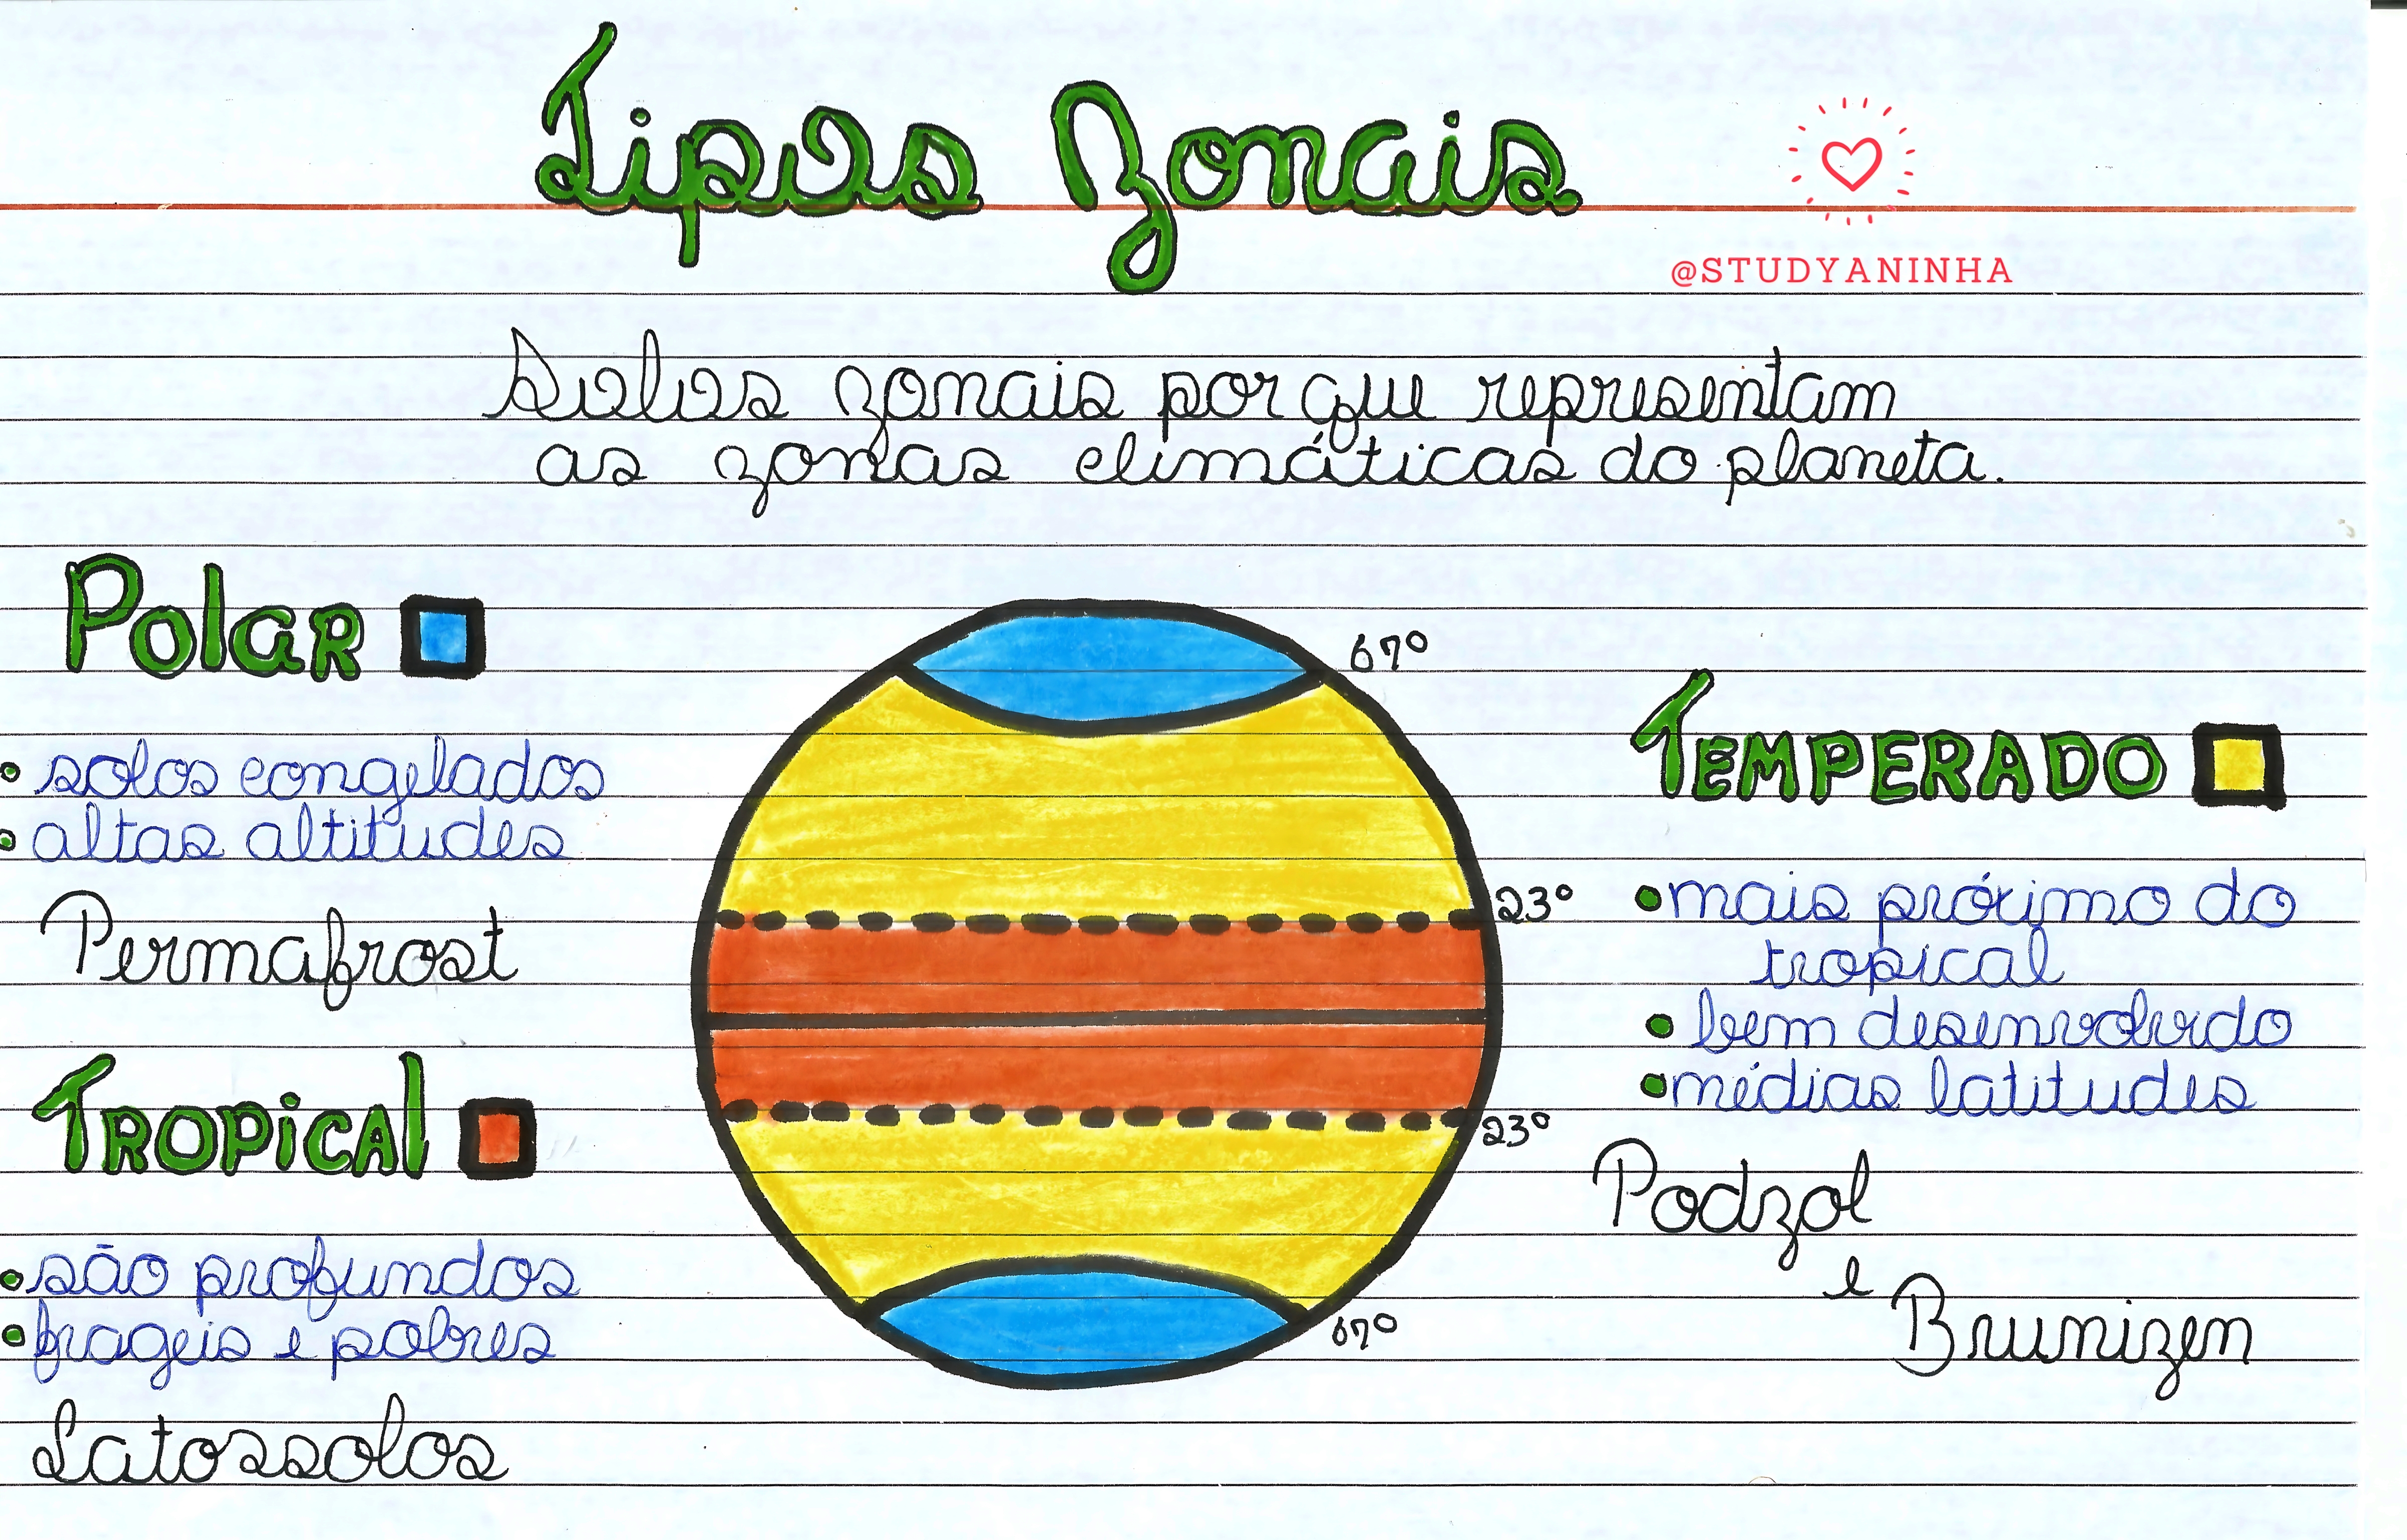 Tipos Zonais
@STUDYANINHA
Solos zonais por que representam
as zonas climáticas do planeta.
Polar
• solos congelados
• altas altitudes
Permafrost
Tropical
• são profundos
• frageis e pobres
Latossolos
67º
23º
23º
67º
Temperado
• mais próximo do
tropical
• bem desenvolvido
• médias latitudes
Podzol
e
Brunizen